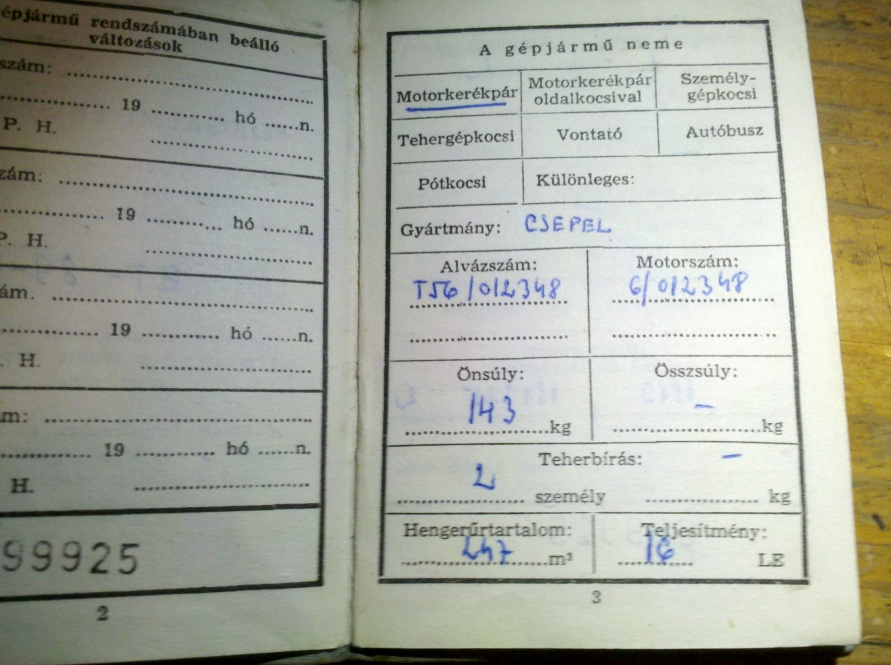 épjármű rendszámában beálló
változások
szám:
19 hó n.
P. H.
zám:
19 hó n.
P. H.
ám.
19 hó n.
H.
m:
19 hó n.
H.
99925
2
A gépjármű neme
Motorkerékpár Motorkerékpár oldalkocsival Személy-gépkocsi
Tehergépkocsi Vontató Autóbusz
Pótkocsi Különleges:
Gyártmány: CSEPEL
Alvázszám: Motorszám:
T56/012348 6/012348
Önsúly: Összsúly:
143 kg – kg
Teherbírás: –
2 személy kg
Hengerűrtartalom: Teljesítmény:
247 m³ 16 LE
3